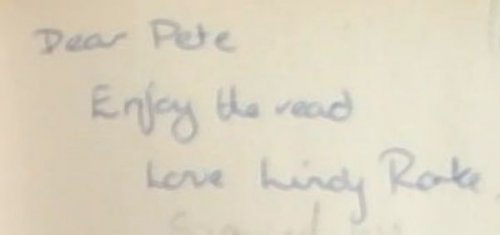 Dear Pete
Enjoy the read
Love Lindy Rooke